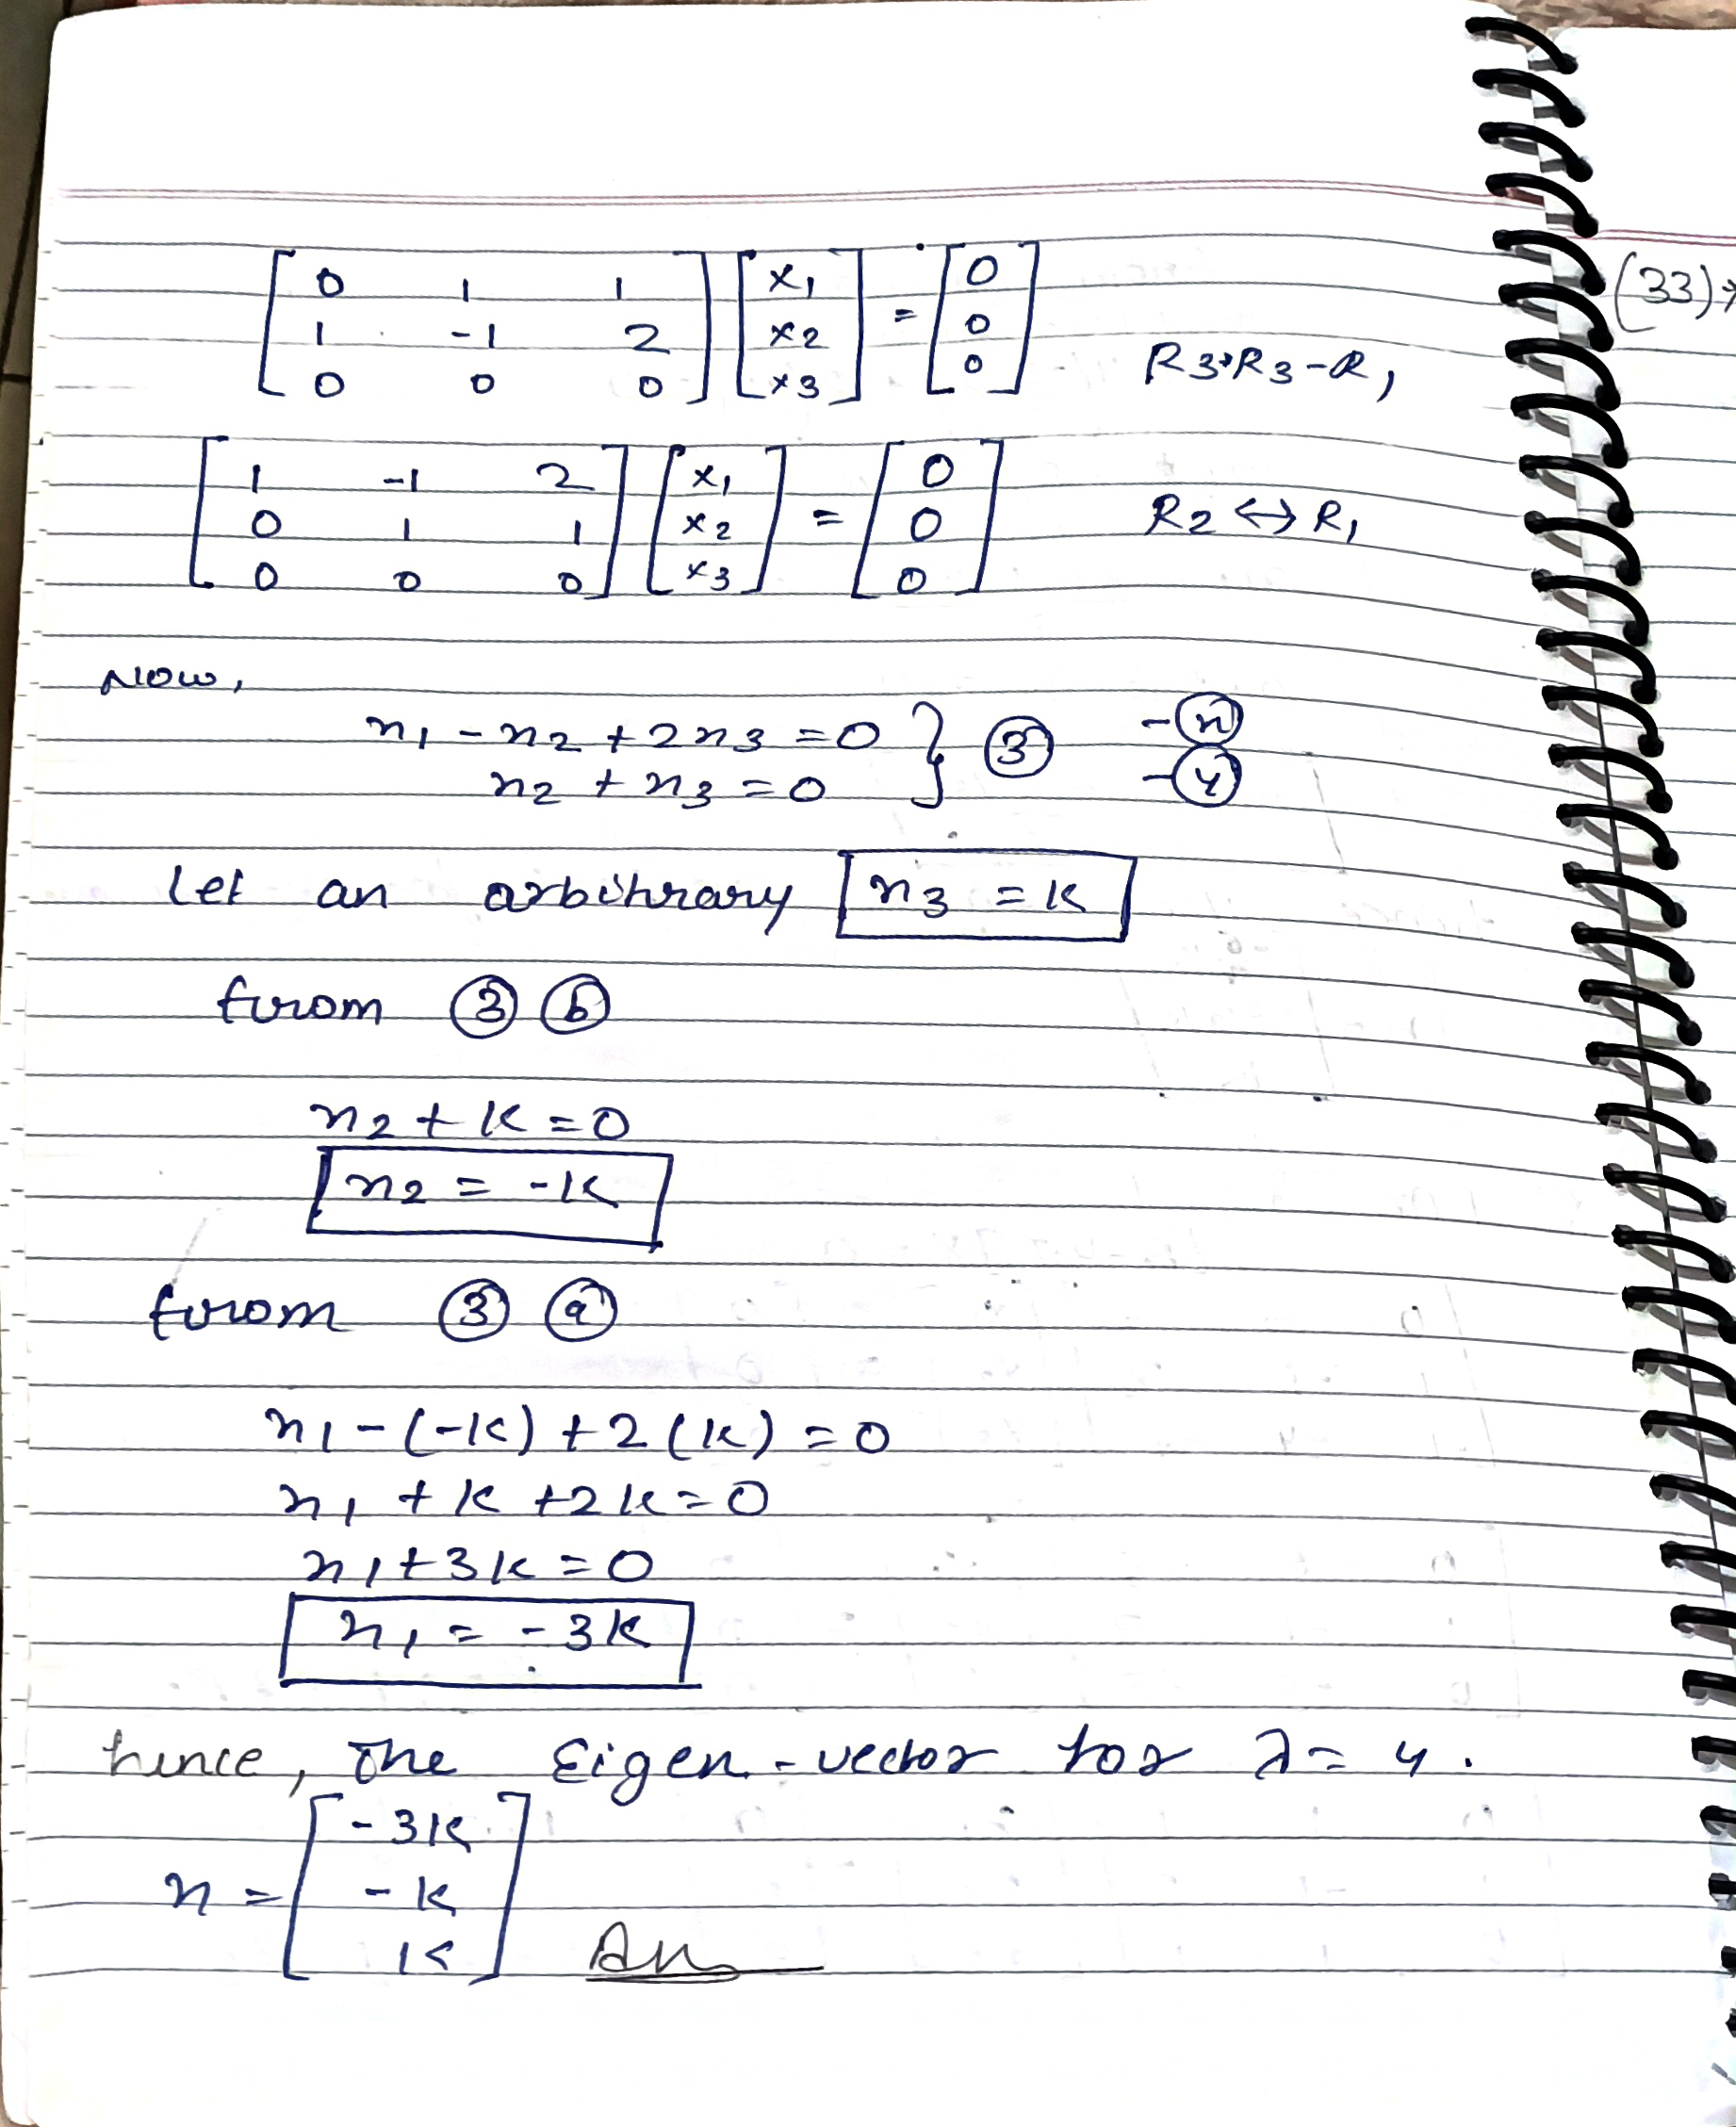 [0 1 1] [x1] = [0]
[1 -1 2] [x2] [0]
[0 0 0] [x3] [0] R3→R3-R1
[1 -1 2] [x1] = [0]
[0 1 1] [x2] [0] R2 ↔ R1
[0 0 0] [x3] [0]
(33)→
Now,
x1 - x2 + 2x3 = 0 } ③ -ⓧ
x2 + x3 = 0 -ⓨ
Let an arbitrary x3 = k
from ③ ⓑ
x2 + k = 0
x2 = -k
from ③ ⓐ
x1 - (-k) + 2(k) = 0
x1 + k + 2k = 0
x1 + 3k = 0
x1 = -3k
hence, the Eigen-vector for λ = 4.
x = [-3k]
[-k]
[k] Ans